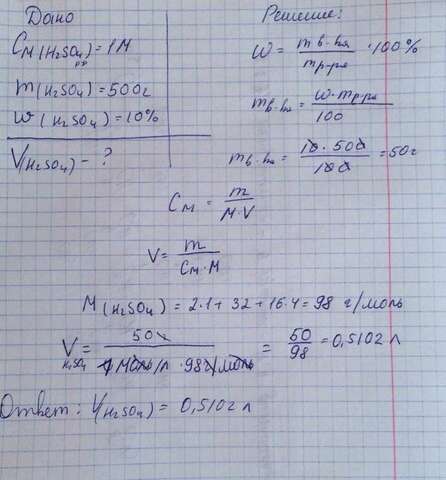 Дано
Cм(H₂SO₄)р-р = 1М
m(H₂SO₄) = 500г
ω(H₂SO₄) = 10%
V(H₂SO₄) - ?
Решение:
ω = mв-ва / mр-ра · 100%
mв-ва = ω · mр-ра / 100
mв-ва = 10 · 500 / 100 = 50г
Cм = m / M · V
V = m / Cм · M
M(H₂SO₄) = 2·1 + 32 + 16·4 = 98 г/моль
V H₂SO₄ = 50г / 1 моль/л · 98г/моль = 50 / 98 = 0,5102 л
Ответ: V(H₂SO₄) = 0,5102 л